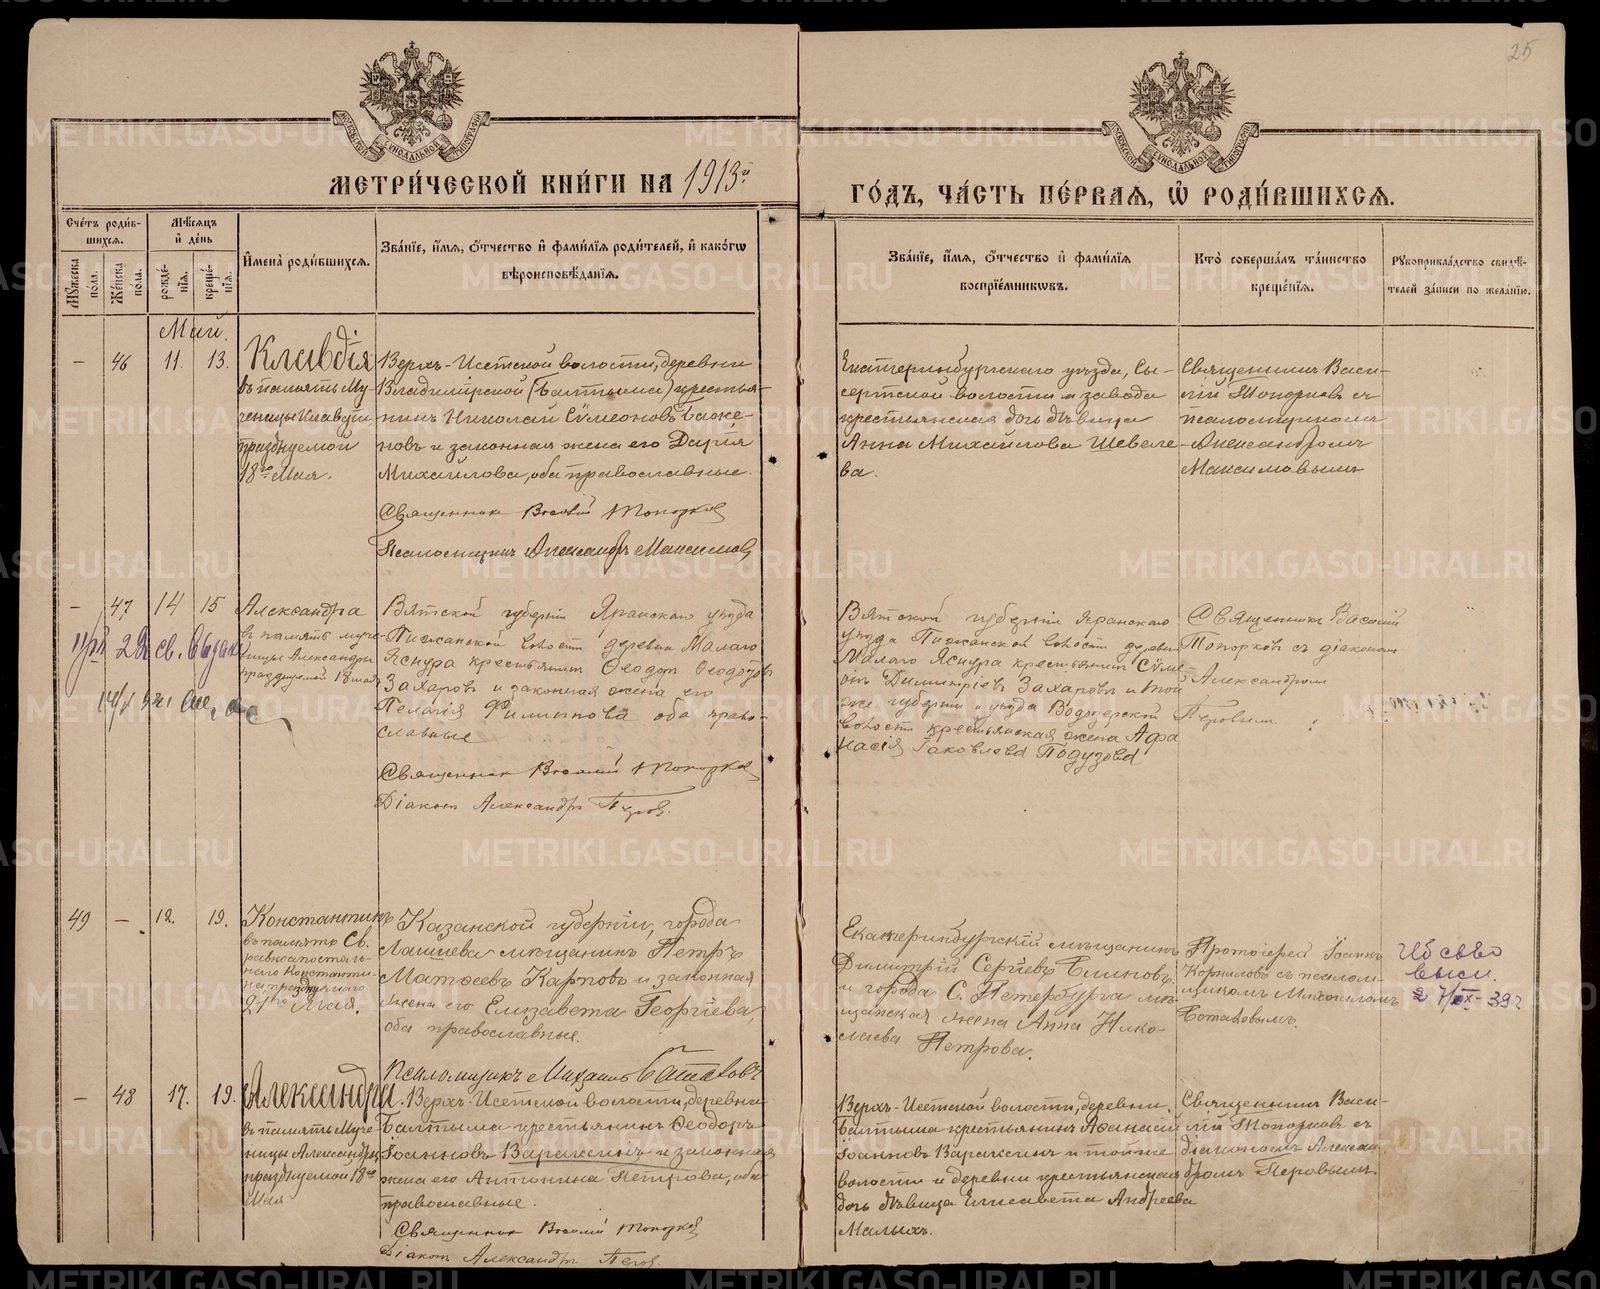 25
МОСКОВСКОЙ СѴНОДАЛЬНОЙ ТИПОГРАФІИ
МОСКОВСКОЙ СѴНОДАЛЬНОЙ ТИПОГРАФІИ
МЕТРИ́ЧЕСКОЙ КНИ́ГИ НА 1913й
ГО́ДЪ, ЧА́СТЬ ПЕ́РВАЯ, Ѡ҆ РОДИ́ВШИХСЯ.
Сче́тъ роди́вшихся.
Мꙋ́жеска по́ла.
Же́нска по́ла.
Мѣ́сяцъ и҆ де́нь
рожде́нія.
креще́нія.
И҆мена̀ роди́вшихся.
Зва́ніе, и҆́мя, ѻ҆́тчество и҆ фами́лія роди́телей, и҆ како́гѡ
вѣроисповѣ́данія.
Зва́ніе, и҆́мя, ѻ҆́тчество и҆ фами́лія
воспріе́мникѡвъ.
Кто̀ соверша́лъ та́инство
креще́нія.
Рꙋкоприкла́дство свидѣ́-
телей за́писи по жела́нію.
Май.
— 46 11. 13.
Клавдія
въ память Му-
ченицы Клавдіи,
празднуемой
18го Мая.
Верхъ-Исетской волости, деревни
Владимірской (Балтыма) крестья-
нинъ Николай Сѵмеоновъ Баже-
новъ и законная жена его Дарія
Михайлова, оба православные.
Священникъ Василій Топорковъ
Псаломщикъ Александръ Максимовъ
Екатеринбургскаго уѣзда, Сы-
сертской волости и завода
крестьянская дочь дѣвица
Анна Михайлова Шевеле-
ва.
Священникъ Васи-
лій Топорковъ съ
псаломщикомъ
Александромъ
Максимовымъ
— 47 14 15
Александра
въ память муче-
ницы Александры
празднуемой 18 мая
Вятской губерніи Яранскаго уѣзда
Пижанской волости деревни Малаго
Яснура крестьянинъ Ѳеодотъ Ѳеодотовъ
Захаровъ и законная жена его
Пелагія Филиппова оба право-
славные
Священникъ Василій Топорковъ
Діаконъ Александръ Перовъ.
Вятской губерніи Яранскаго
уѣзда Пижанской волости деревни
Малаго Яснура крестьянинъ Сѵме-
онъ Димитріевъ Захаровъ и той
же губерніи и уѣзда Водозерской
волости крестьянская жена Афа
насія Іаковлева Подузова
Священникъ Василій
Топорковъ съ діакономъ
Александромъ
Перовымъ
49 — 12. 19.
Константинъ
въ память Св.
равноапостоль-
наго Константи-
на празднуемаго
21го Мая.
Казанской губерніи, города
Лаишева мѣщанинъ Петръ
Матѳеевъ Карповъ и законная
жена его Елизавета Георгіева,
оба православные.
Псаломщикъ Михаилъ Боташовъ
Екатеринбургскій мѣщанинъ
Димитрій Сергіевъ Блиновъ
и города С. Петербурга мѣ-
щанская жена Анна Нико-
лаева Петрова.
Протоіерей Іоаннъ
Корниловъ съ псалом-
щикомъ Михаиломъ
Боташовымъ.
— 48 17. 19.
Александра.
въ память Муче-
ницы Александры
празднуемой 18го
Мая
Верхъ-Исетской волости, деревни
Балтыма крестьянинъ Ѳеодоръ
Іоанновъ Вараксинъ и законная
жена его Антонина Петрова, оба
православные.
Священникъ Василій Топорковъ
Діаконъ Александръ Перовъ.
Верхъ-Исетской волости, деревни
Балтыма крестьянинъ Аѳанасій
Іоанновъ Вараксинъ и тойже
волости и деревни крестьянская
дочь дѣвица Елисавета Андреева
Малыхъ.
Священникъ Васи-
лій Топорковъ съ
діакономъ Алексан-
дромъ Перовымъ.
METRIKI.GASO-URAL.RU